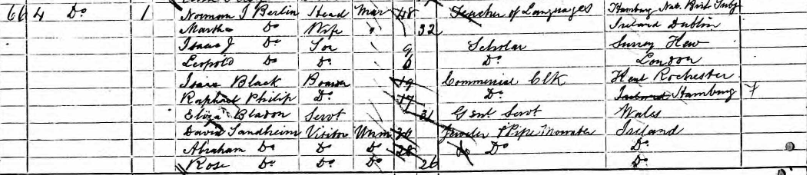 66 4 Do 1 Norman J Berlin Head Mar 48 Teacher of Languages Hamburg Nat. Brit. Subj
Martha Do Wife " 32 Ireland Dublin
Isaac J Do Son 9 Scholar Surrey Kew
Leopold Do Do 6 Do London
Isaac Black Boarder 19 Commercial Clk Kent Rochester
Raphael Philip Do 17 Do Ireland Hamburg
Eliza Bladon Servt 21 Genl Servt Wales
David Sandheim Visitor Unm Jeweler & Pipe Mounter Ireland
Abraham Do Do Do 28 Do Do
Rose Do Do Do 26 Do